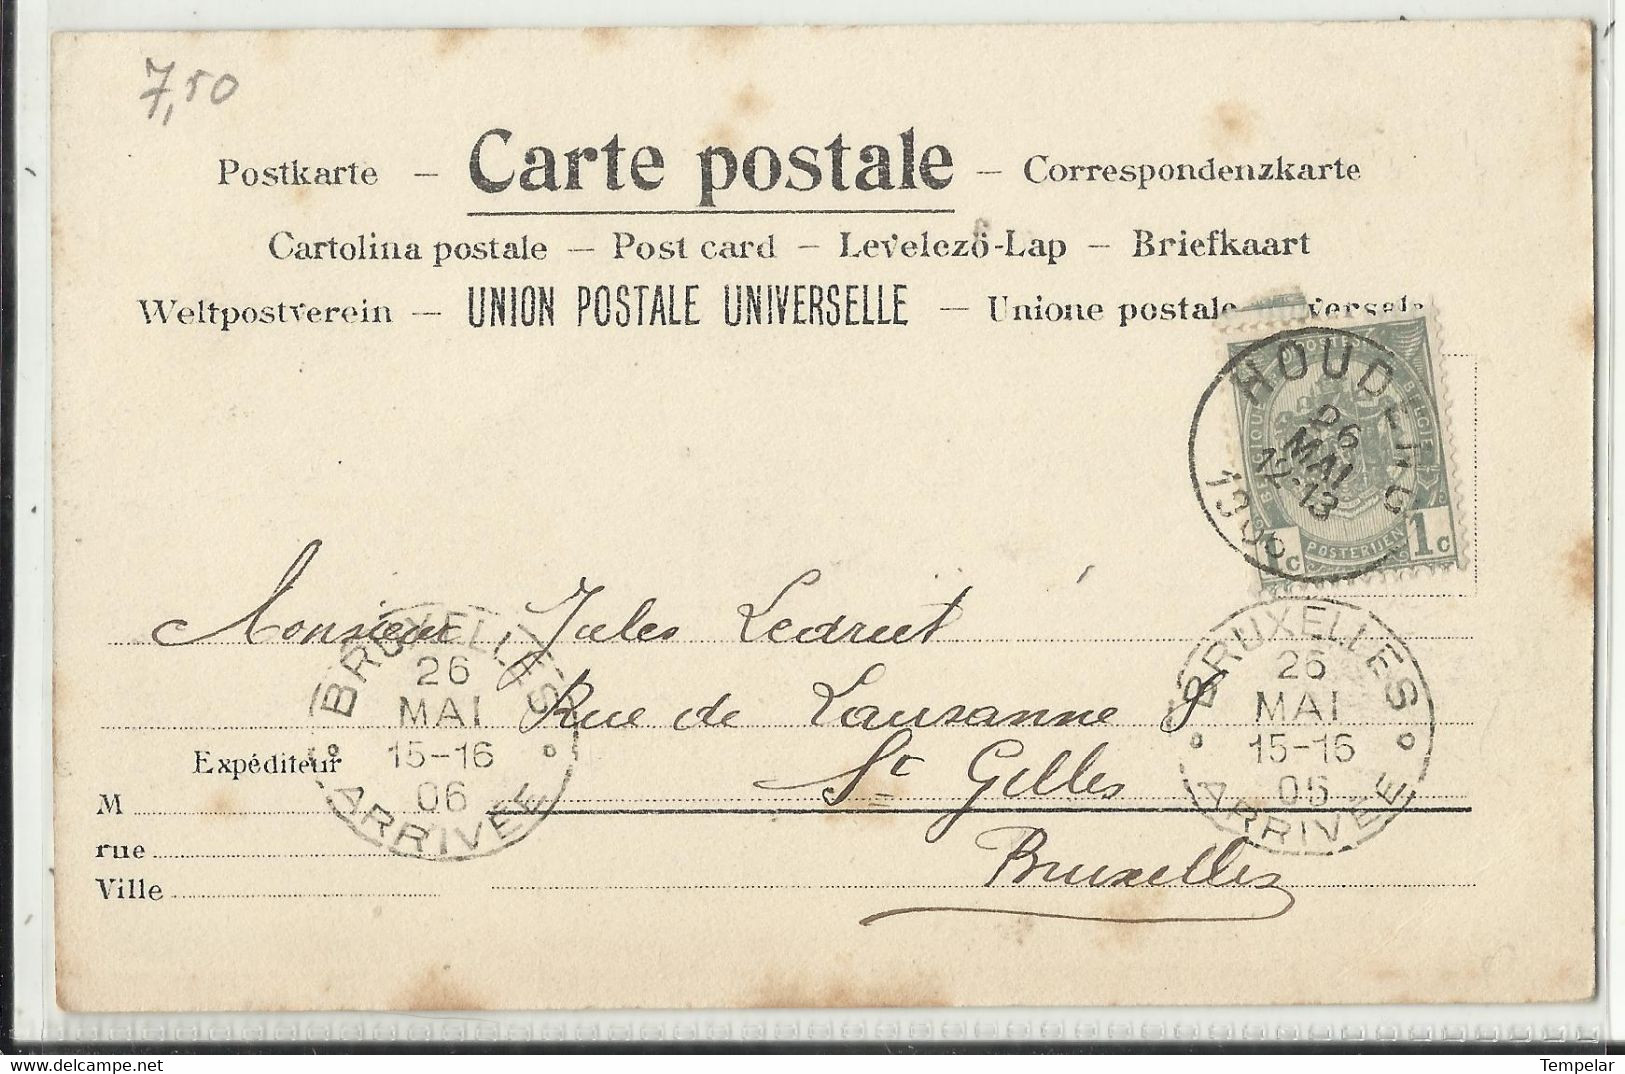 7,50
Postkarte – Carte postale – Correspondenzkarte
Cartolina postale – Post card – Levelezö-Lap – Briefkaart
Weltpostverein – UNION POSTALE UNIVERSELLE – Unione postale
HOUDENG
26
MAI
12-13
BELGIQUE POSTES BELGIE
POSTERIJEN
1c 1c
Monsieur Jules Ledrut
Rue de Lausanne
St Gilles
Bruxelles
BRUXELLES
26
MAI
15-16
06
ARRIVÉE
BRUXELLES
26
MAI
15-16
06
ARRIVÉE
Expéditeur
M
rue
Ville
Tempelar